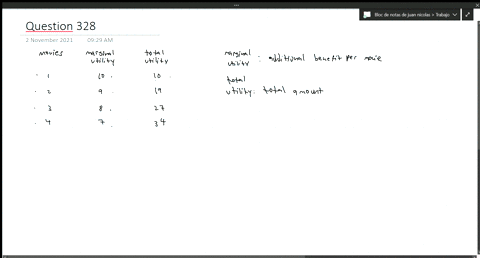 Bloc de notas de juan nicolas » Trabajo
Question 328
2 November 2021 09:29 AM
movies marginal utility total utility
1 10 10
2 9 19
3 8 27
4 7 34
marginal utility : additional benefit per movie
total
utility: total amount